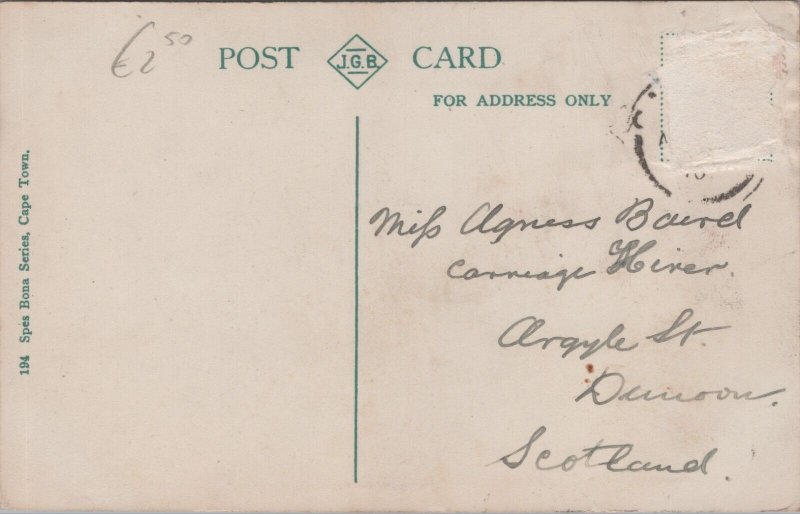 £2 50
POST J.G.B. CARD
FOR ADDRESS ONLY
194 Spes Bona Series, Cape Town.
Miss Agness Baird
Carriage Hirer.
Argyle St.
Dunoon.
Scotland.